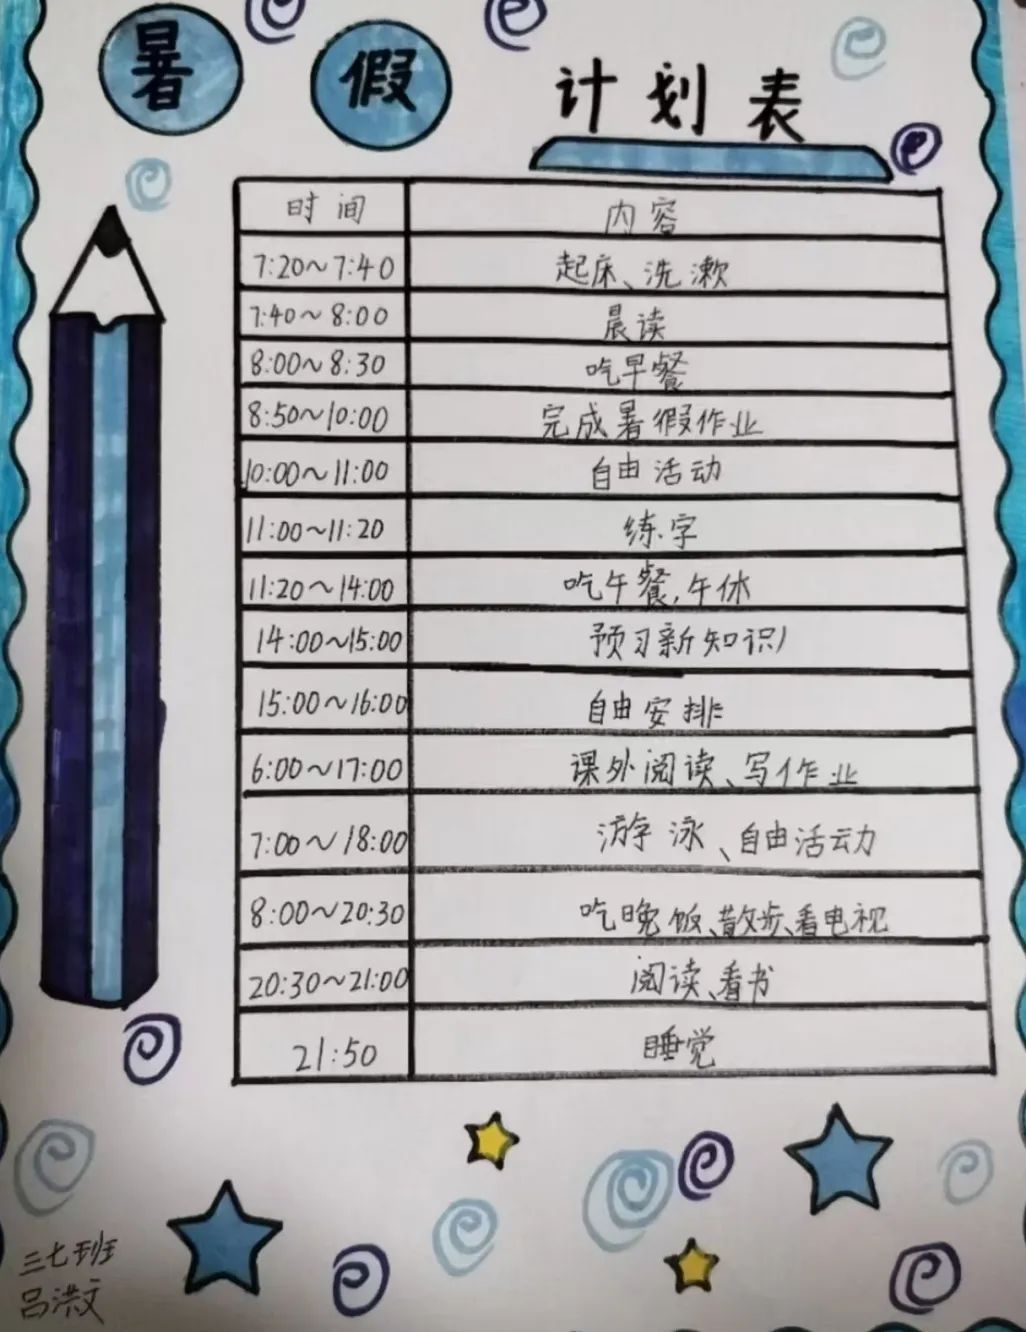 暑 假 计划表
时间 内容
7:20~7:40 起床、洗漱
7:40~8:00 晨读
8:00~8:30 吃早餐
8:50~10:00 完成暑假作业
10:00~11:00 自由活动
11:00~11:20 练字
11:20~14:00 吃午餐,午休
14:00~15:00 预习新知识
15:00~16:00 自由安排
6:00~17:00 课外阅读、写作业
7:00~18:00 游泳、自由活动
8:00~20:30 吃晚饭、散步、看电视
20:30~21:00 阅读、看书
21:50 睡觉
三七班
吕洪文